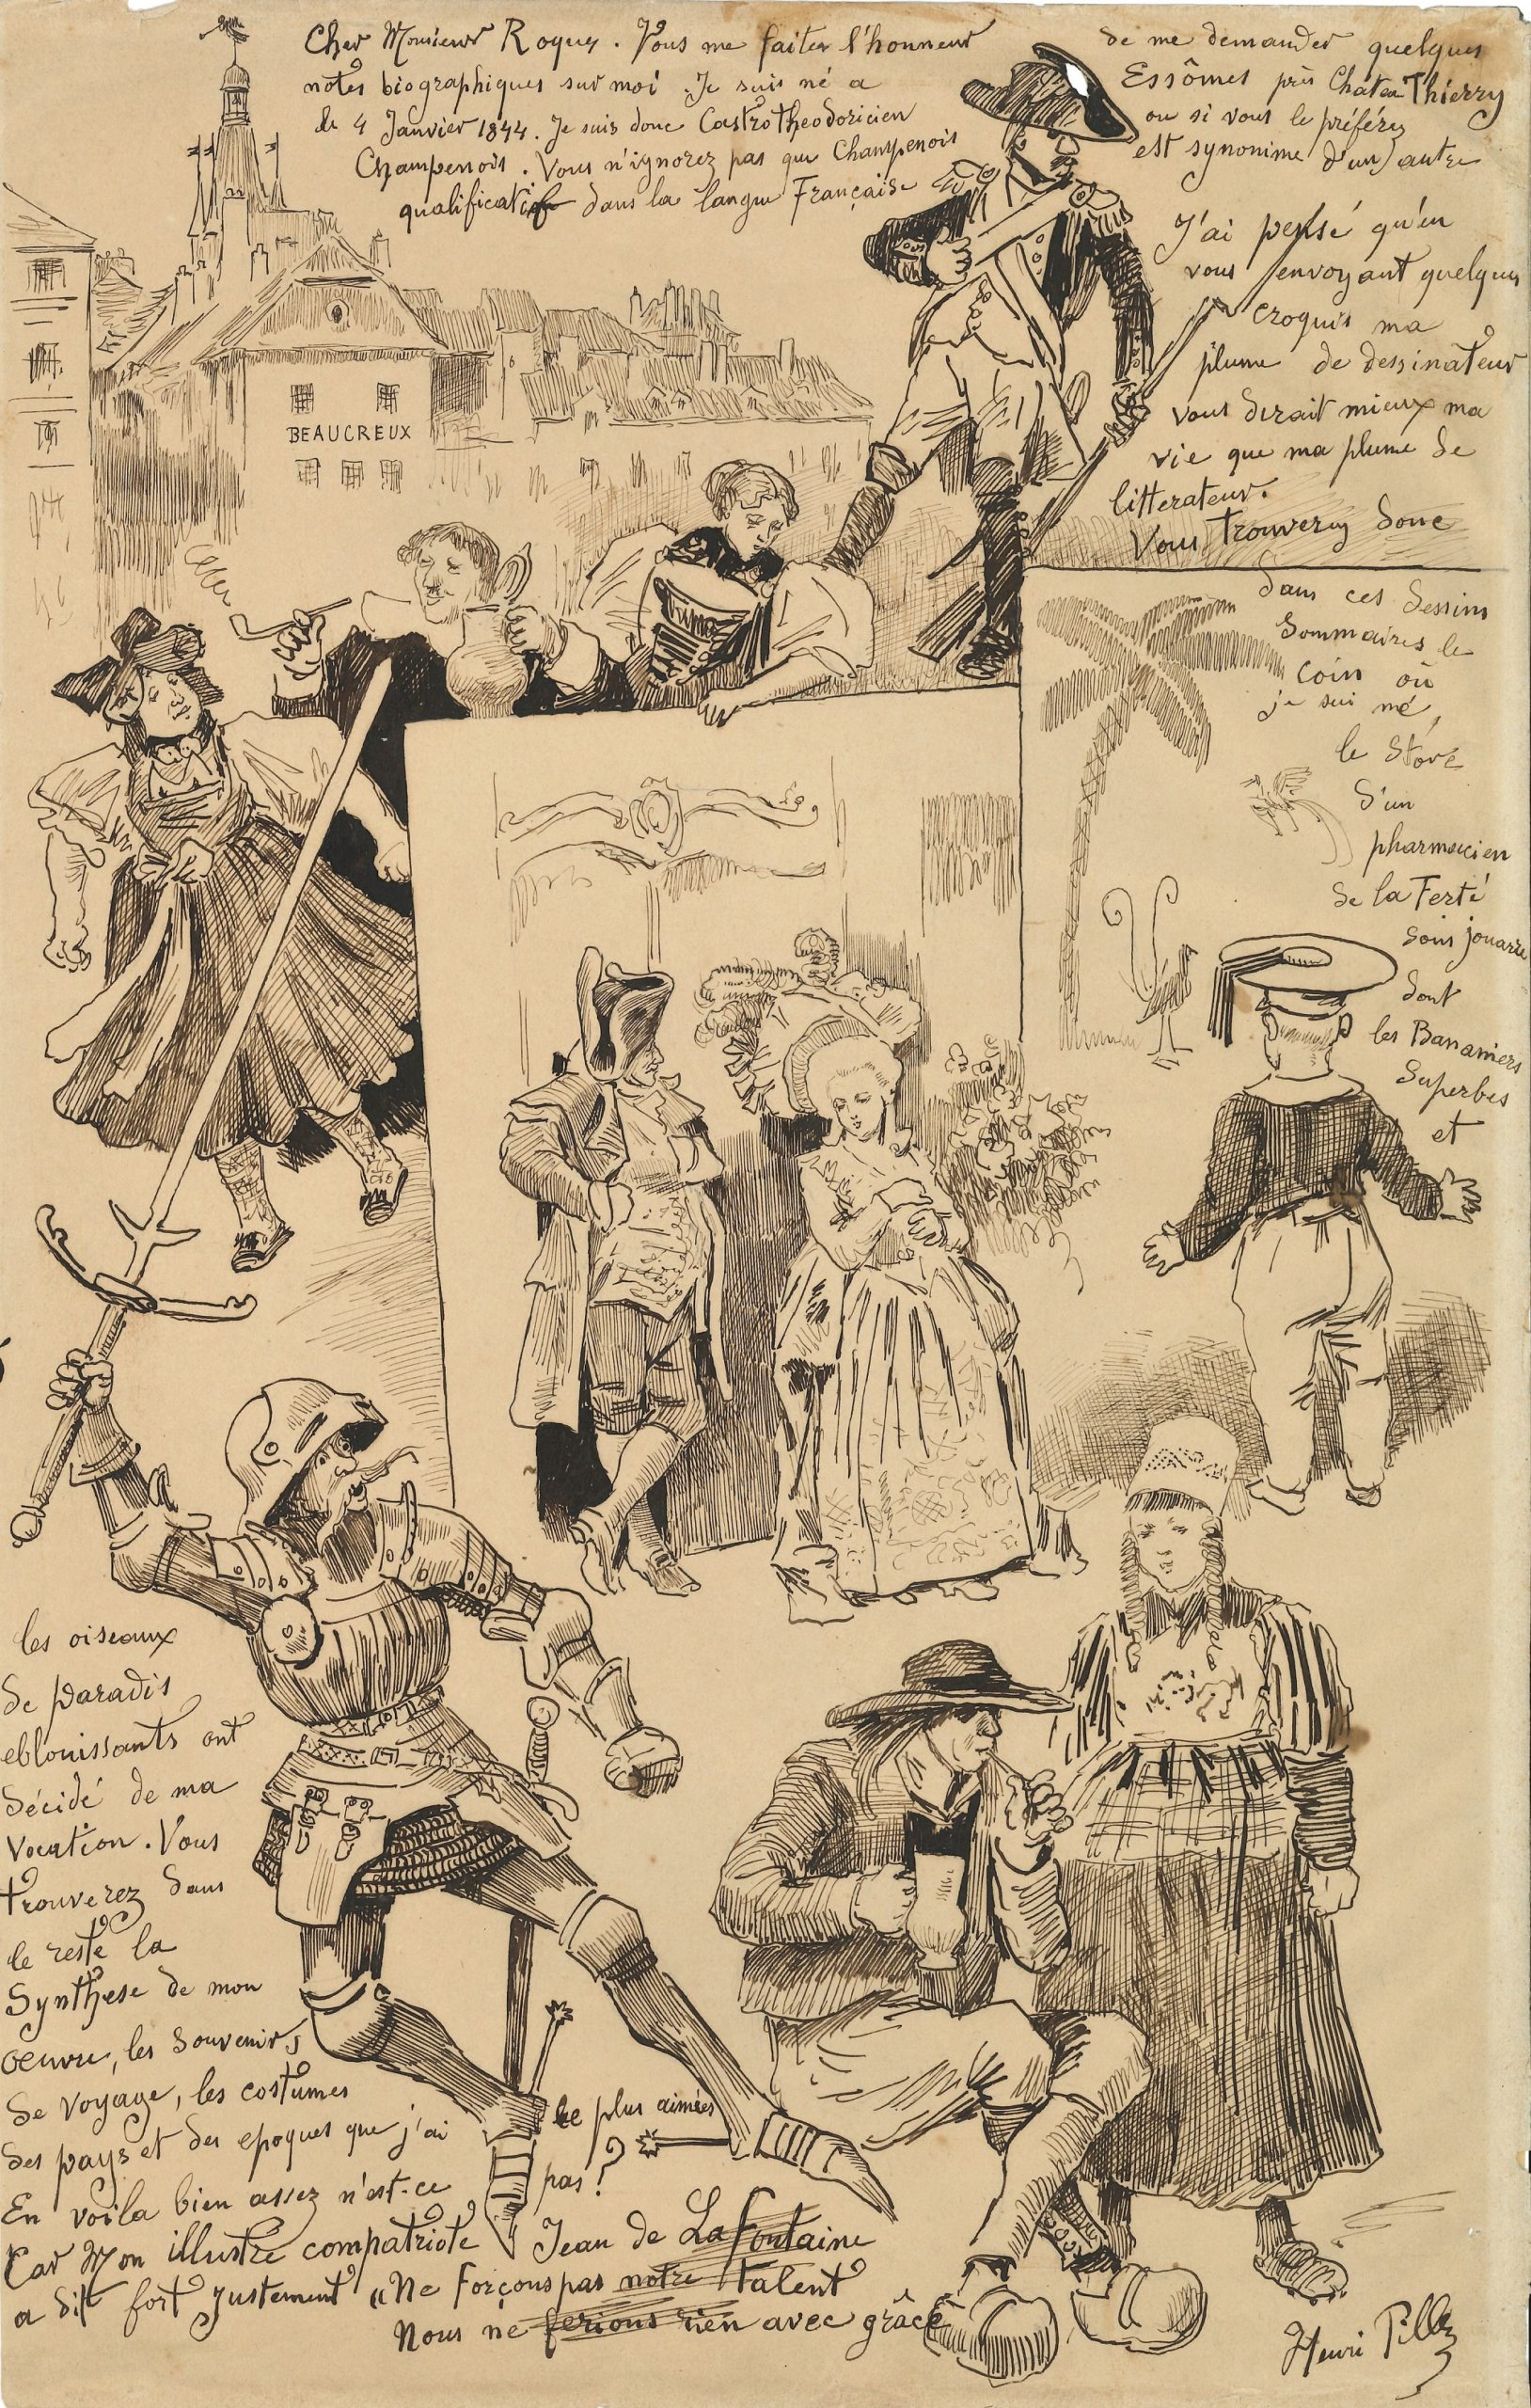 Cher Monsieur Roques. Vous me faites l'honneur de me demander quelques
notes biographiques sur moi. Je suis né a Essômes près Chateau Thierry
le 4 Janvier 1844. Je suis donc Castrotheodoricien ou si vous le préférez
Champenois. Vous n'ignorez pas que Champenois est synonime d'un autre
qualificatif dans la langue Française
J'ai pensé qu'en
vous envoyant quelques
croquis ma
plume de dessinateur
vous dirait mieux ma
vie que ma plume de
litterateur.
Vous trouverez donc
dans ces dessins
sommaires le
coin où
je suis né,
le store
d'un
pharmacien
de la Ferté
sous jouarre
dont
les Bananiers
superbes
et
BEAUCREUX
les oiseaux
de paradis
eblouissants ont
décidé de ma
vocation. Vous
trouverez dans
le reste la
Synthese de mon
oeuvre, les souvenirs
de voyage, les costumes
des pays et des epoques que j'ai le plus aimées
En voila bien assez n'est-ce pas?
Car Mon illustre compatriote Jean de La fontaine
a dit fort justement "Ne forçons pas notre talent
Nous ne ferions rien avec grâce
Henri Pille